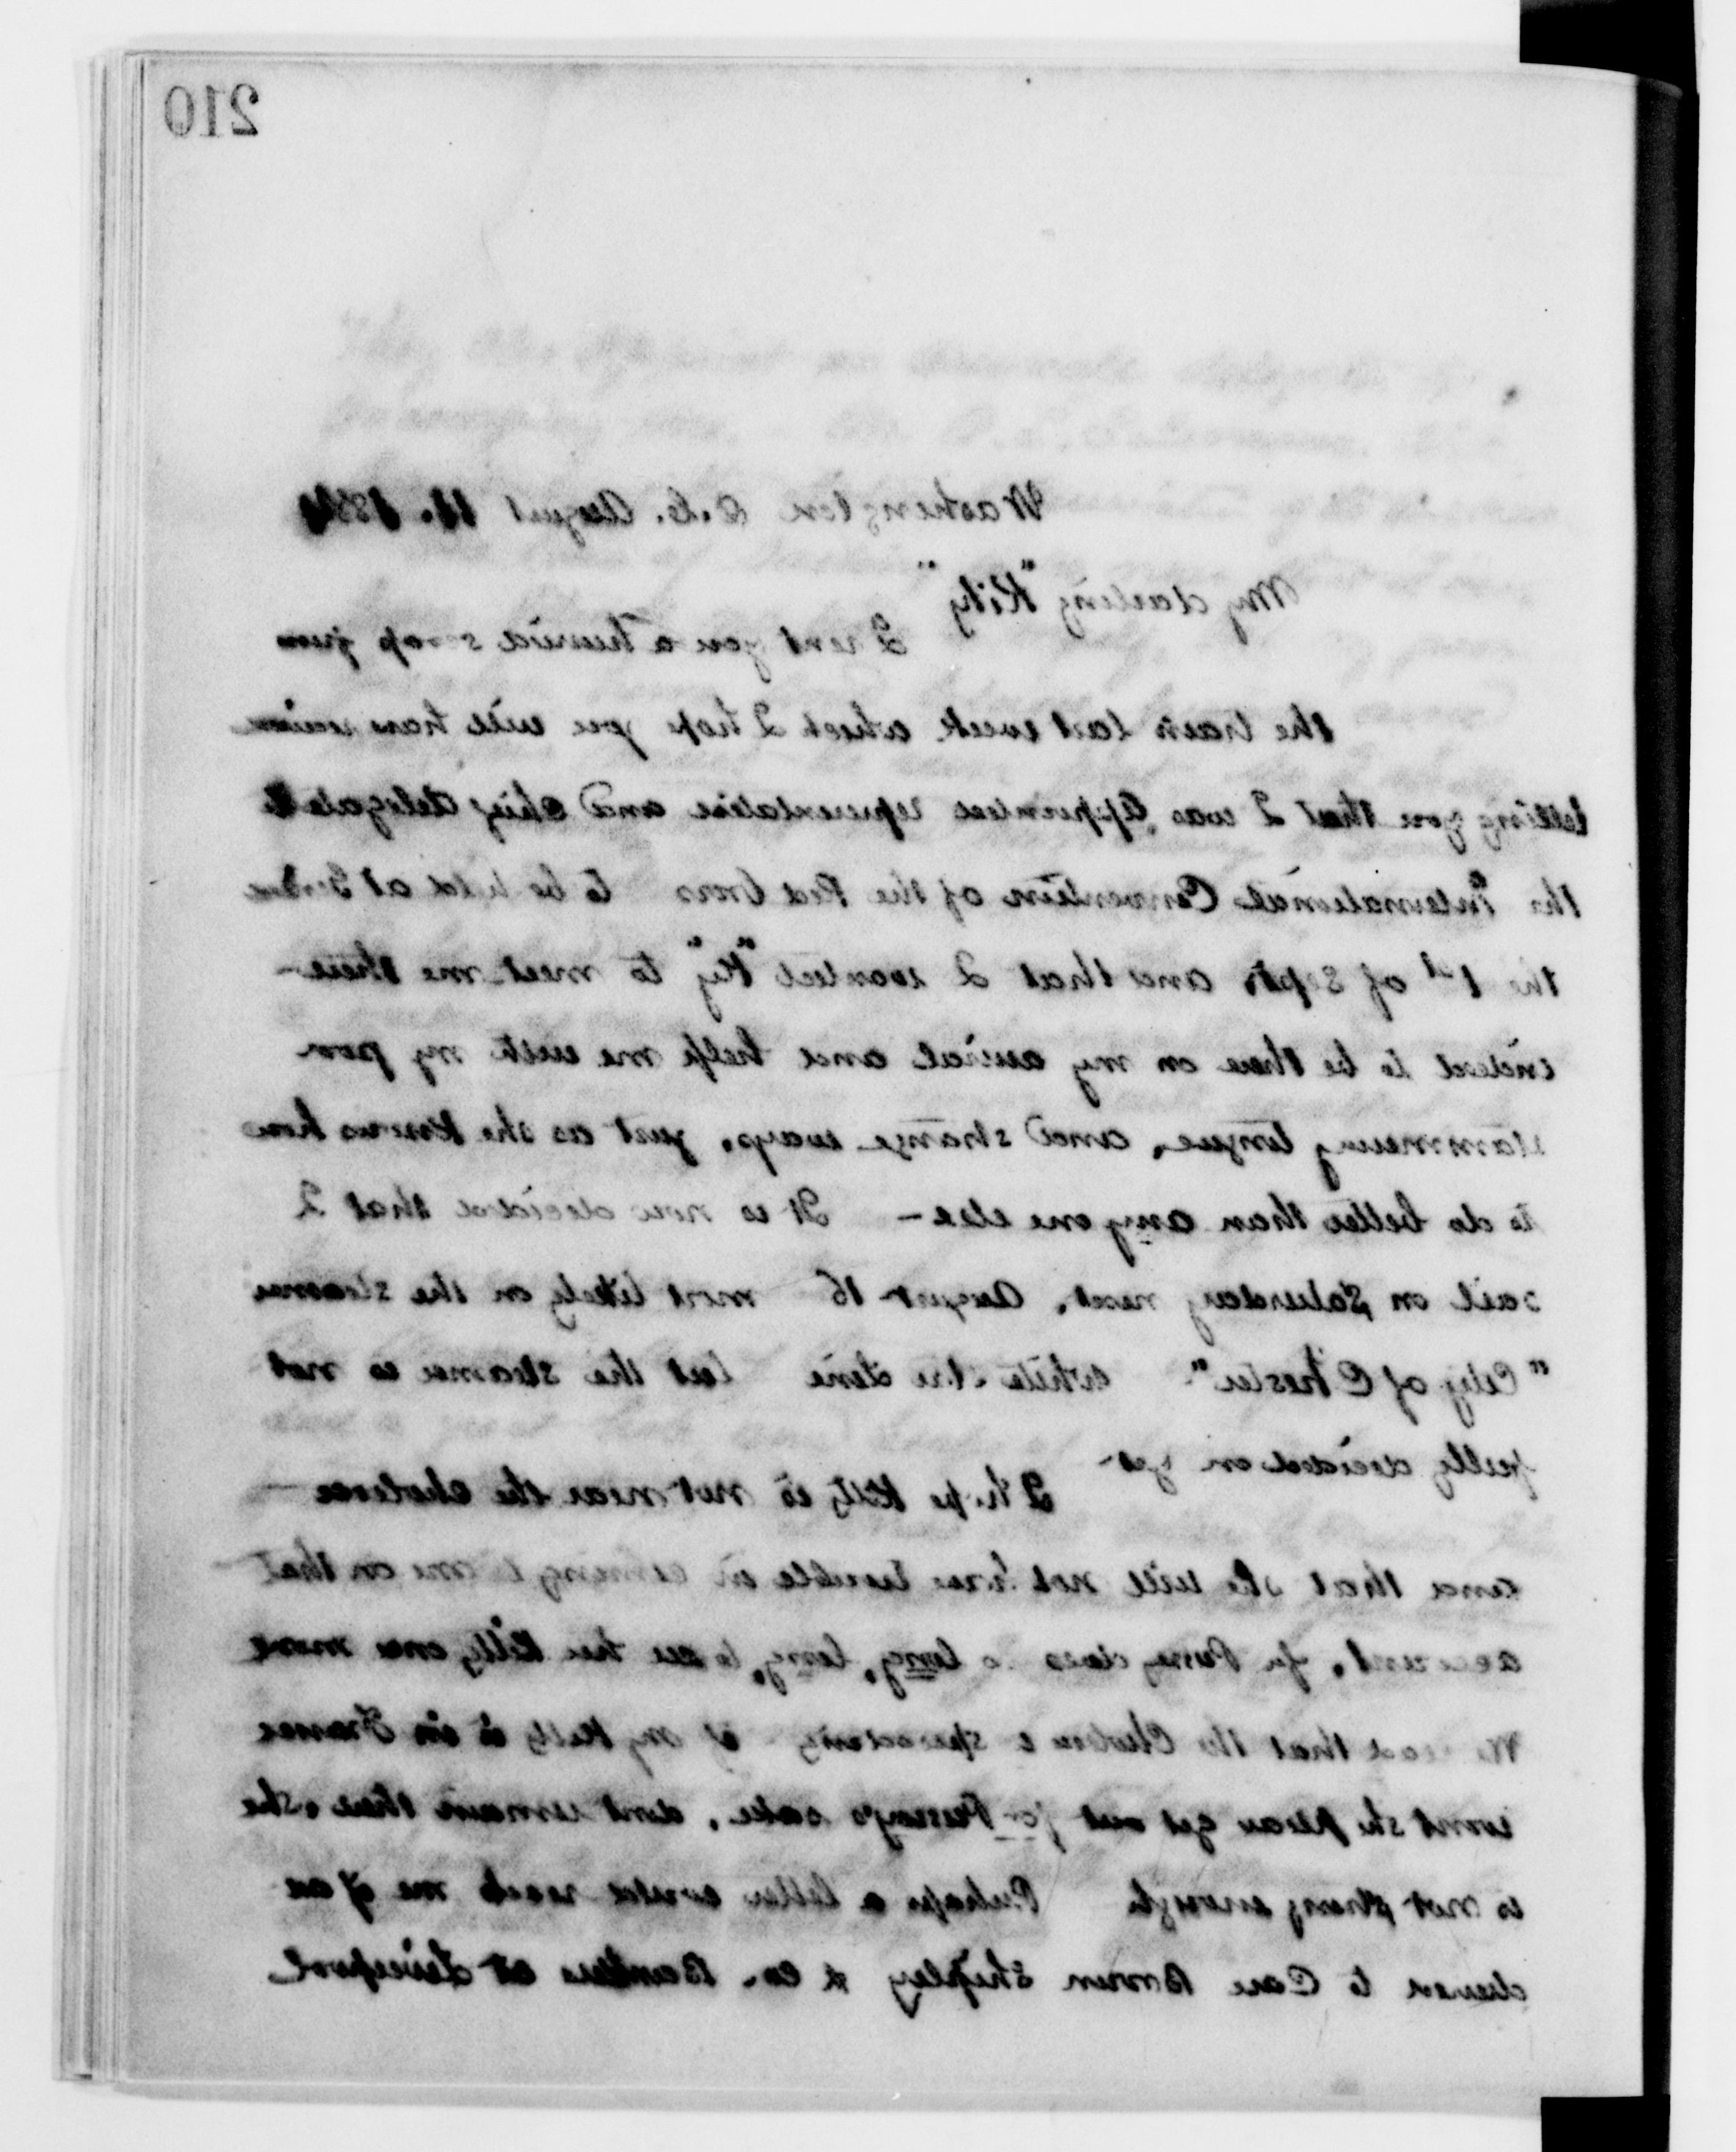 210
Washington D.C. August 11. 1884
My darling "Kity"
I sent you a hurried scrap from
the train last week which I hope you will have received
telling you that I was appointed representative and chief delegate to
the International Convention of the Red Cross to be held at Geneva
the 1st of Sept, and that I wanted "Ky" to meet me there—
indeed to be there on my arrival and help me with my poor
stammering tongue, and strange ways, just as she knows how
to do better than any one else — It is now decided that I
sail on Saturday next, August 16 most likely on the steamer
"City of Chester" White Star Line but the steamer is not
fully decided on yet—
I hope Kitty is not near the cholera—
and that she will not have trouble in coming to me on that
account, for Pussy does so long, long, to see her Kitty once more
We read that the Cholera is spreading if my Kitty is in France
wont she please get out for Pussy's sake, dont remain there. She
is not strong enough Perhaps a letter could reach me if ad
dressed to Care Brown Shipley & Co. Bankers at Liverpool